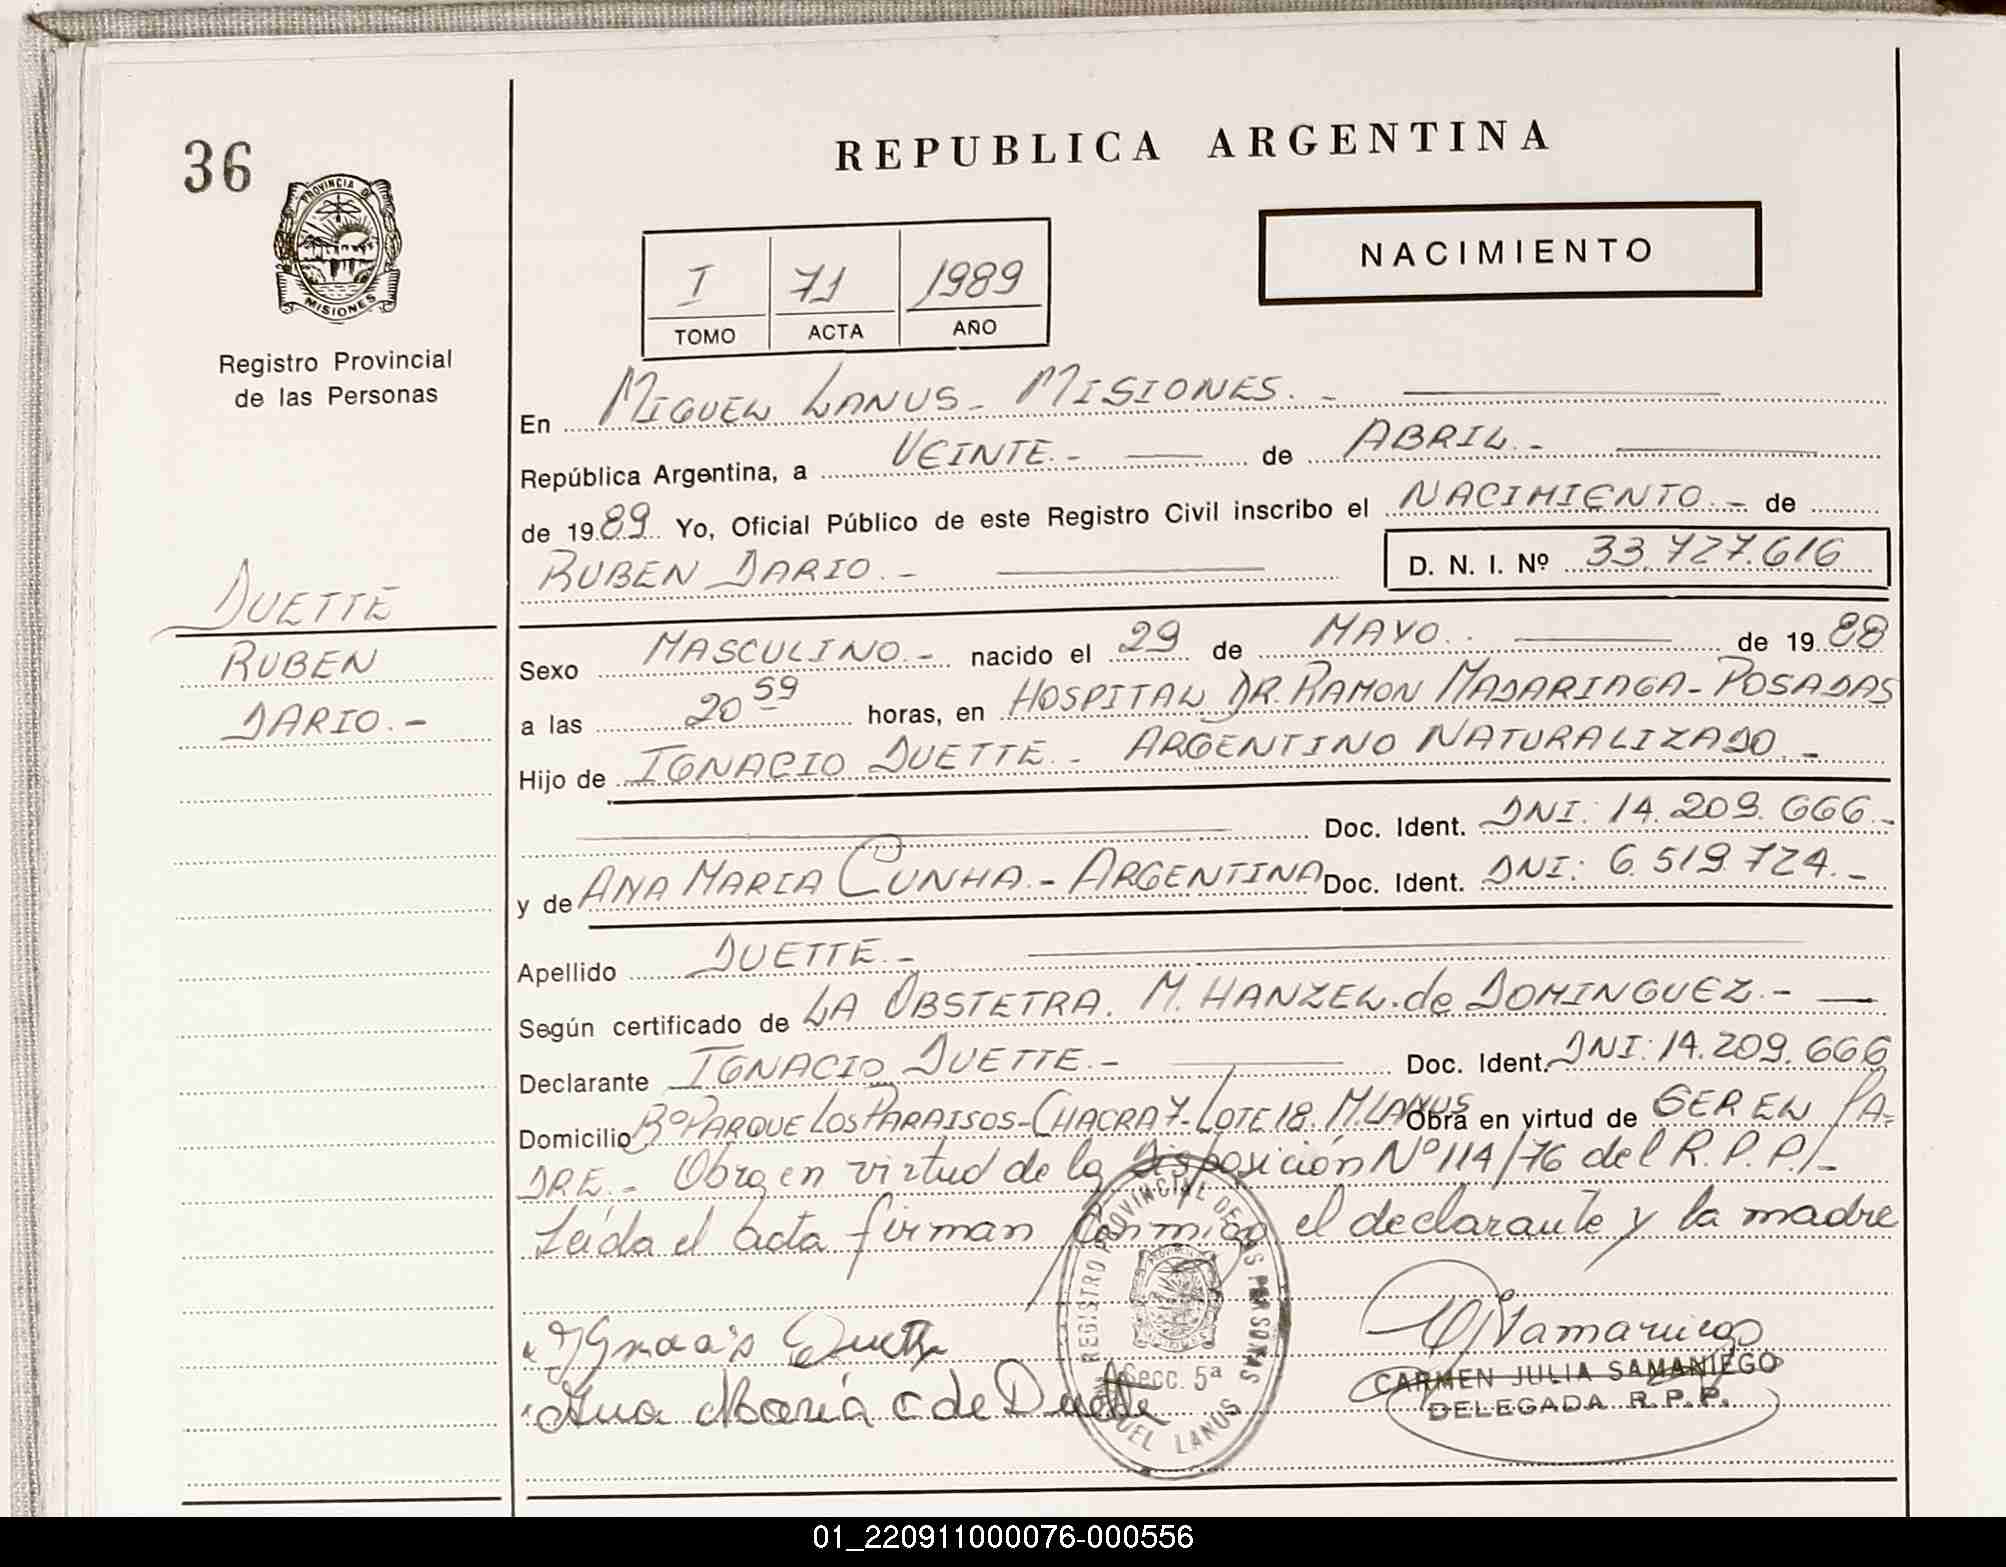 36
PROVINCIA DE
MISIONES
Registro Provincial
de las Personas
DUETTE
RUBEN
DARIO.-
REPUBLICA ARGENTINA
NACIMIENTO
I 71 1989
TOMO ACTA AÑO
En MIGUEL LANUS - MISIONES. -
República Argentina, a VEINTE.- de ABRIL.-
de 1989. Yo, Oficial Público de este Registro Civil inscribo el NACIMIENTO.- de
RUBEN DARIO.- D. N. I. Nº 33.727.616
Sexo MASCULINO.- nacido el 29 de MAYO.. de 1988
a las 20 59 horas, en HOSPITAL DR. RAMON MADARIAGA - POSADAS
Hijo de IGNACIO DUETTE.- ARGENTINO NATURALIZADO.-
Doc. Ident. DNI: 14.209.666.-
y de ANA MARIA CUNHA.- ARGENTINA Doc. Ident. DNI: 6.519.724.-
Apellido DUETTE.-
Según certificado de LA OBSTETRA. M. HANZEL. de DOMINGUEZ.-
Declarante IGNACIO DUETTE.- Doc. Ident. DNI: 14.209.666
Domicilio Bº PARQUE LOS PARAISOS - CHACRA 7 - LOTE 18. M. LANUS Obra en virtud de SER EL PA-
DRE.- Obra en virtud de la Disposición Nº 114/76 del R.P.P./-
Leída el acta firman conmigo el declarante y la madre
REGISTRO PROVINCIAL DE LAS PERSONAS
Secc. 5ª
MIGUEL LANUS
Ignacio Duette
Ana María C de Duette
CJSamaniego
CARMEN JULIA SAMANIEGO
DELEGADA R.P.P.
01_220911000076-000556